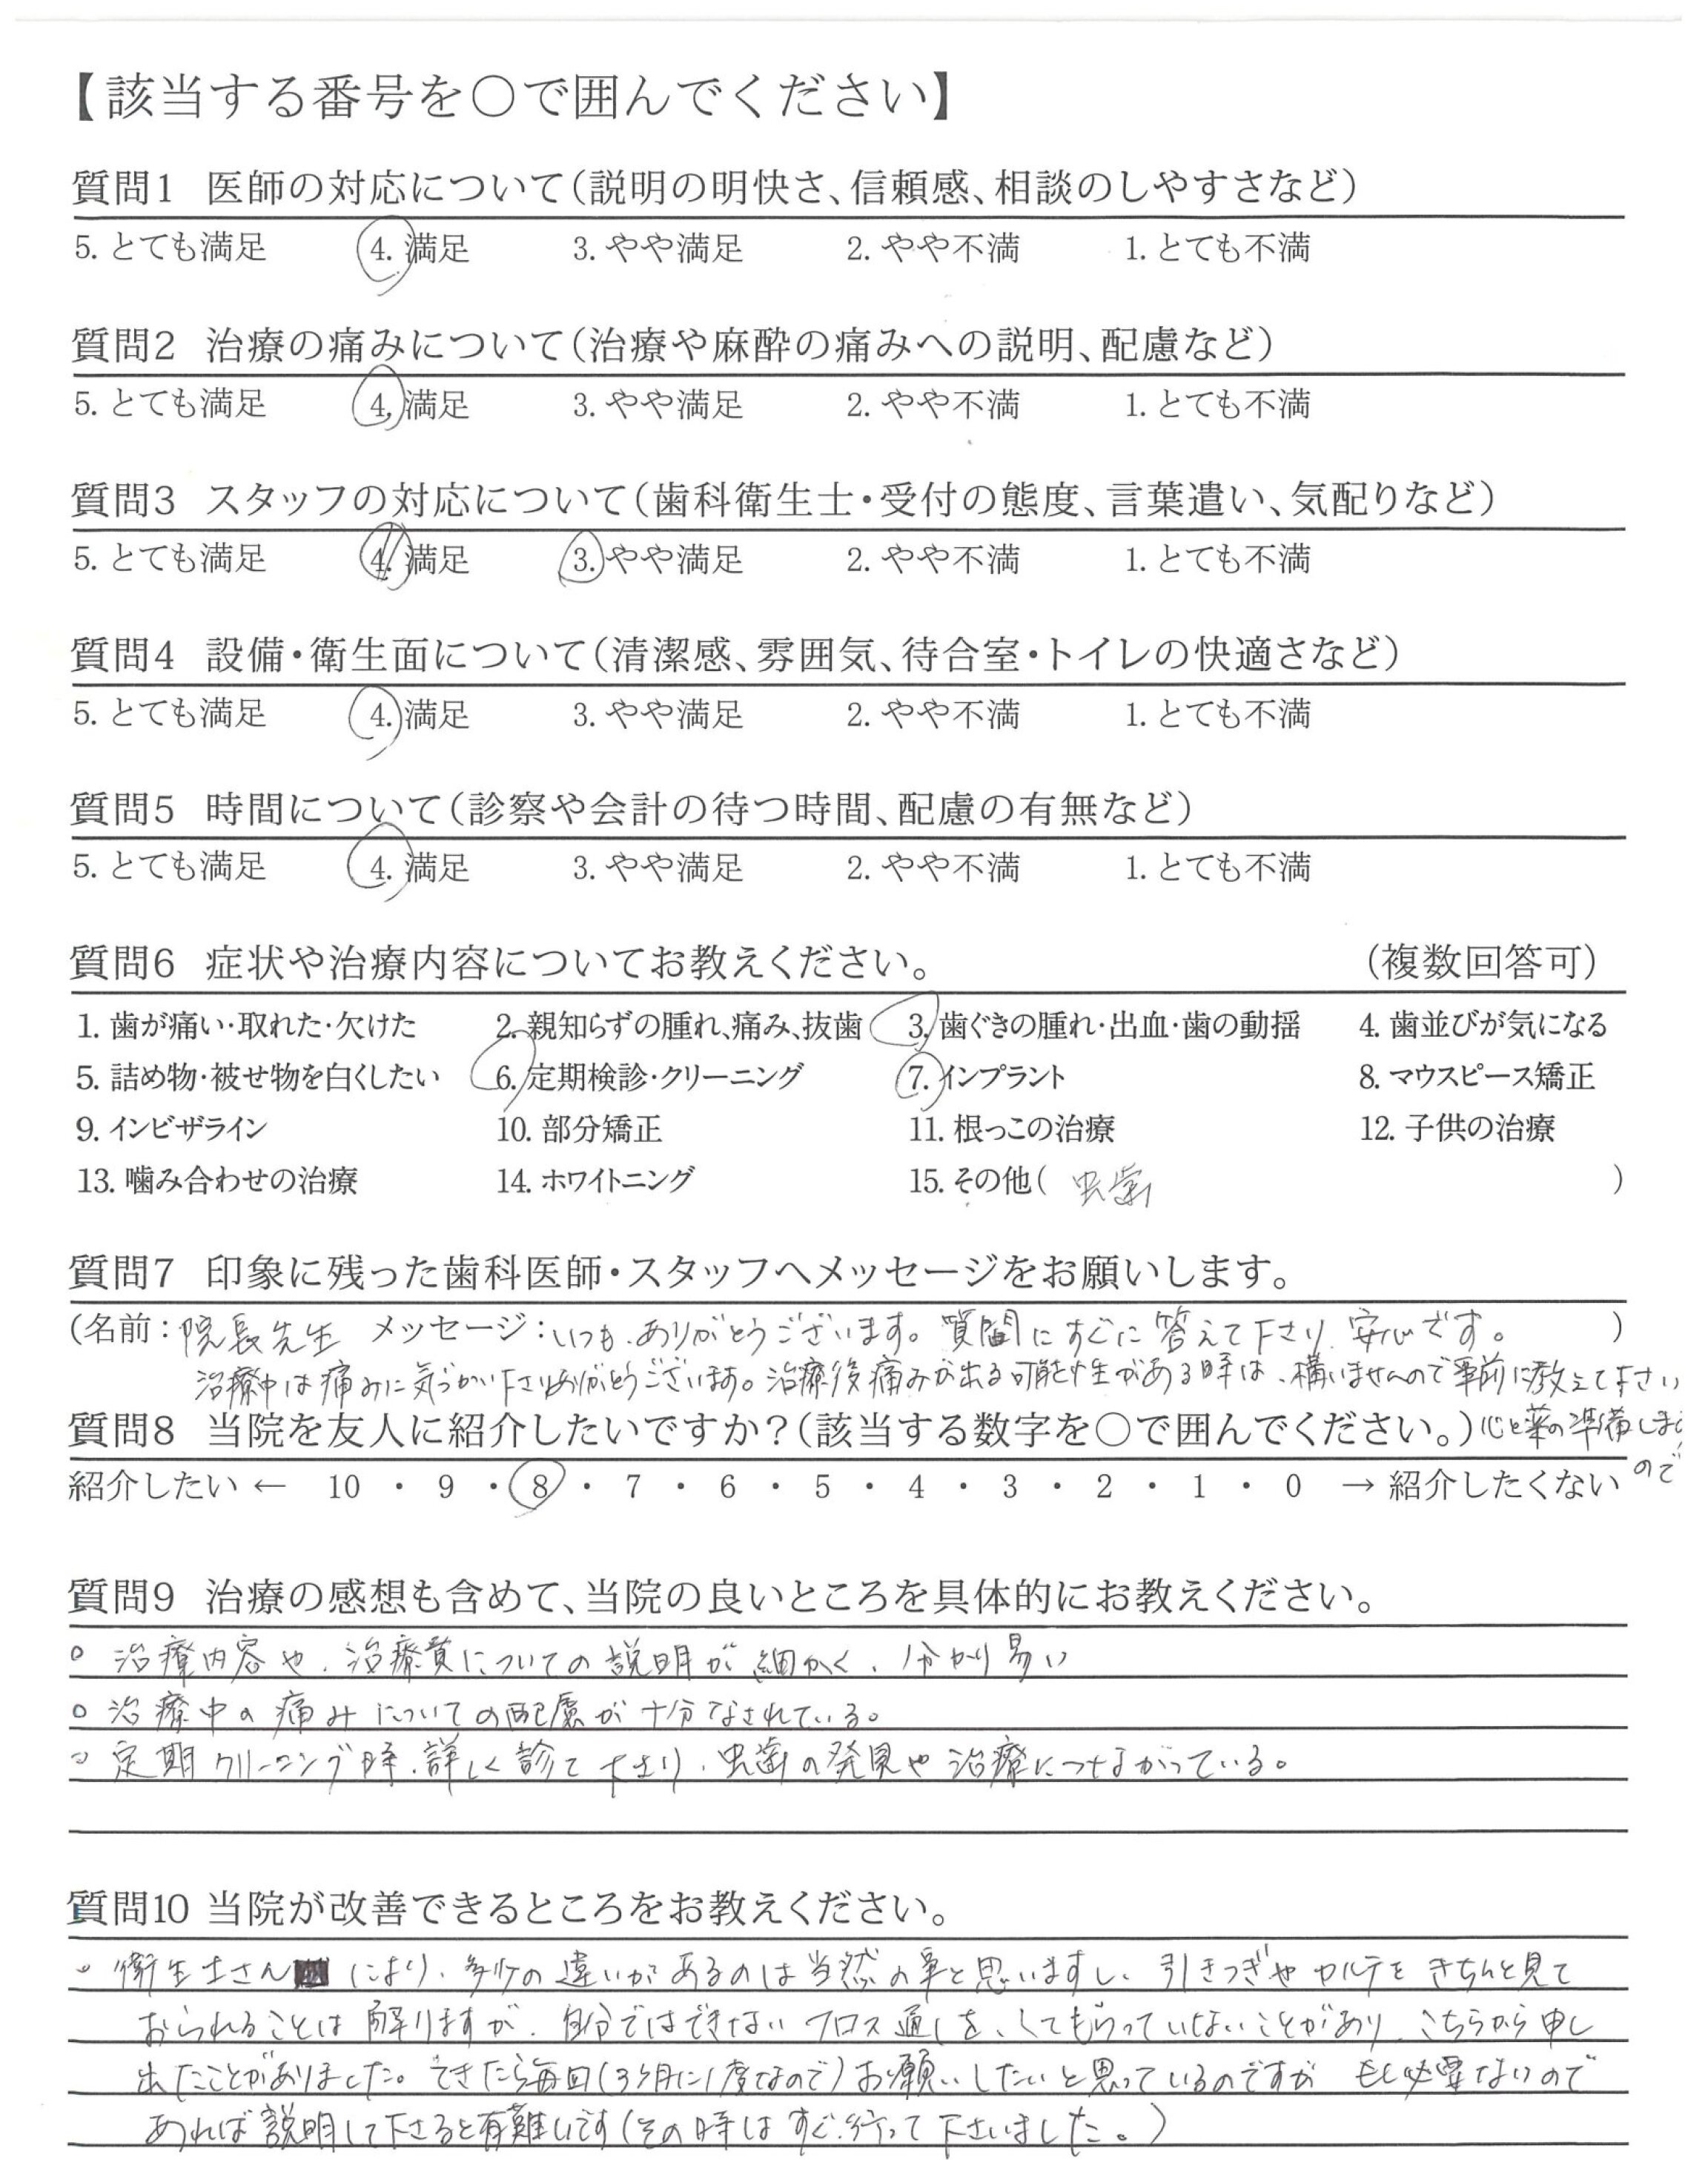 【該当する番号を○で囲んでください】
質問1 医師の対応について(説明の明快さ、信頼感、相談のしやすさなど)
5. とても満足 4. 満足 3. やや満足 2. やや不満 1. とても不満
質問2 治療の痛みについて(治療や麻酔の痛みへの説明、配慮など)
5. とても満足 4. 満足 3. やや満足 2. やや不満 1. とても不満
質問3 スタッフの対応について(歯科衛生士・受付の態度、言葉遣い、気配りなど)
5. とても満足 4. 満足 3. やや満足 2. やや不満 1. とても不満
質問4 設備・衛生面について(清潔感、雰囲気、待合室・トイレの快適さなど)
5. とても満足 4. 満足 3. やや満足 2. やや不満 1. とても不満
質問5 時間について(診察や会計の待つ時間、配慮の有無など)
5. とても満足 4. 満足 3. やや満足 2. やや不満 1. とても不満
質問6 症状や治療内容についてお教えください。 (複数回答可)
1. 歯が痛い・取れた・欠けた 2. 親知らずの腫れ、痛み、抜歯 3. 歯ぐきの腫れ・出血・歯の動揺 4. 歯並びが気になる
5. 詰め物・被せ物を白くしたい 6. 定期検診・クリーニング 7. インプラント 8. マウスピース矯正
9. インビザライン 10. 部分矯正 11. 根っこの治療 12. 子供の治療
13. 噛み合わせの治療 14. ホワイトニング 15. その他( 虫歯 )
質問7 印象に残った歯科医師・スタッフへメッセージをお願いします。
(名前：院長先生 メッセージ：いつも、ありがとうございます。質問にすぐに答えて下さり、安心です。 )
治療中は痛みに気づかい下さりありがとうございます。治療後痛みが出る可能性がある時は、構いませんので事前に教えて下さい
質問8 当院を友人に紹介したいですか？(該当する数字を○で囲んでください。) 心と薬の準備します
ので
紹介したい ← 10 ・ 9 ・ 8 ・ 7 ・ 6 ・ 5 ・ 4 ・ 3 ・ 2 ・ 1 ・ 0 → 紹介したくない
質問9 治療の感想も含めて、当院の良いところを具体的にお教えください。
○ 治療内容や、治療費についての説明が細かく、分かり易い
○ 治療中の痛みについての配慮が十分なされている。
○ 定期クリーニング時、詳しく診て下さり、虫歯の発見や治療につながっている。
質問10 当院が改善できるところをお教えください。
○ 衛生士さん により、多少の違いがあるのは当然の事と思いますし、引きつぎやカルテをきちんと見て
おられることは解りますが、自分ではできないフロス通しを、してもらっていないことがあり、こちらから申し
出たことがありました。できたら毎回(3ヶ月に1度なので)お願いしたいと思っているのですが もし必要ないので
あれば説明して下さると有難いです(その時はすぐ行って下さいました。)